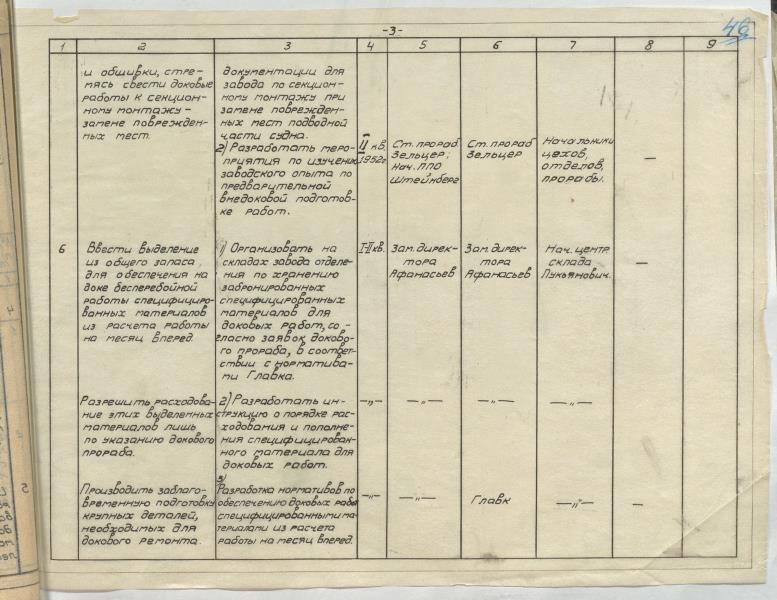 -3-
46
1 2 3 4 5 6 7 8 9
и обшивки, стре-
мясь свести доковые
работы к секцион-
ному монтажу-
замене поврежден-
ных мест.
документации для
завода по секцион-
ному монтажу при
замене поврежден-
ных мест подводной
части судна.
2) Разработать меро-
приятия по изучению
заводского опыта по
предварительной
внедоковой подготов-
ке работ.
II кв.
1952г.
Ст. прораб
Зельцер,
Нач. ППО
Штейнберг
Ст. прораб
Зельцер
Начальники
цехов,
отделов,
прорабы.
—
6
Ввести выделение
из общего запаса
для обеспечения на
доке бесперебойной
работы специфициро-
ванных материалов
из расчета работы
на месяц вперед.
1) Организовать на
складах завода отделе-
ния по хранению
забронированных
специфицированных
материалов для
доковых работ, со-
гласно заявок доково-
го прораба, в соответ-
ствии с норматива-
ми Главка.
I-II кв.
Зам. дирек-
тора
Афанасьев
Зам. дирек-
тора
Афанасьев
Нач. центр.
склада
Лукьянович.
—
Разрешить расходова-
ние этих выделенных
материалов лишь
по указанию докового
прораба.
2) Разработать ин-
струкцию о порядке рас-
ходования и пополне-
ния специфицирован-
ного материала для
доковых работ.
—„—
—„—
—„—
—„—
Производить заблаго-
временную подготовку
крупных деталей,
необходимых для
докового ремонта.
3)
Разработка нормативов по
обеспечению доковых работ
специфицированными ма-
териалами из расчета
работы на месяц вперед.
—„—
—„—
Главк
—„—
—